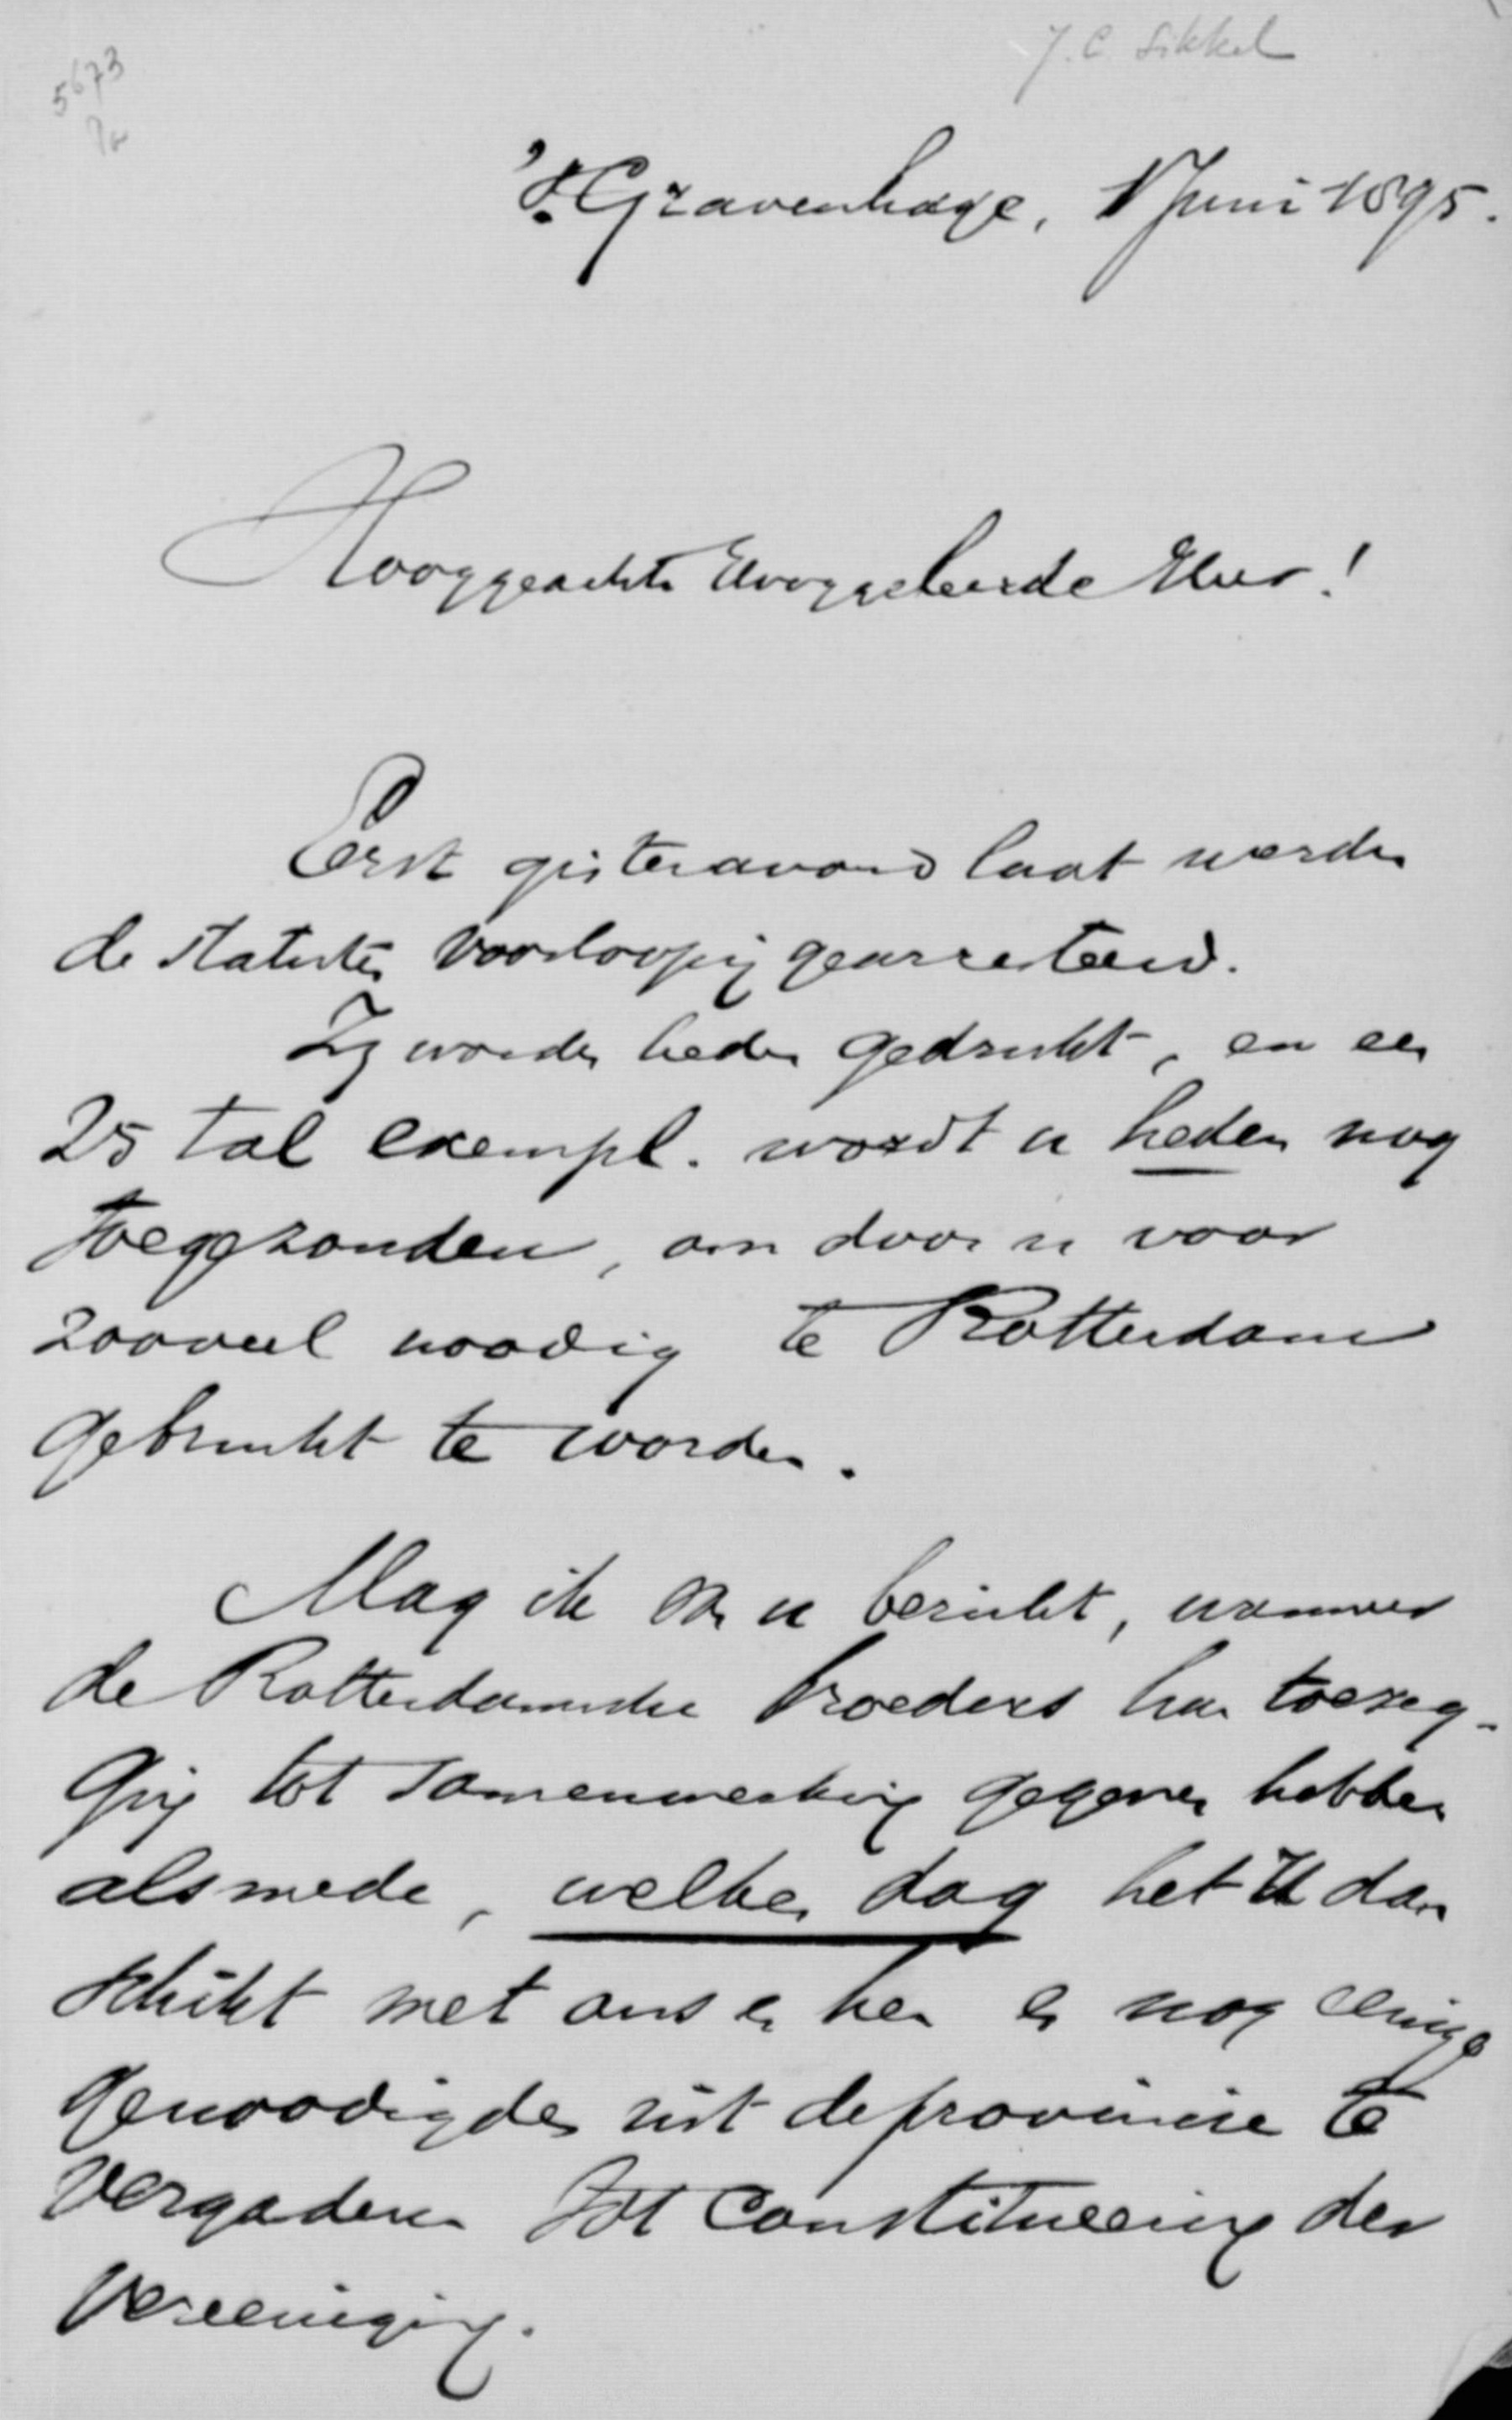 J. C. Sikkel
5673
's Gravenhage, 1 Juni 1895.
Hooggeachte Hooggeleerde Heer!
Eerst gisteravond laat werden
de statuten voorloopig gearresteerd.
Zij worden heden gedrukt, en een
25 tal exempl. wordt u heden nog
toegezonden, om door u voor
zooveel noodig te Rotterdam
gebruikt te worden.
Mag ik van u bericht, wanneer
de Rotterdamsche broeders hun toezeg-
ging tot samenwerking gegeven hebben
alsmede, welken dag het U dan
schikt met ons en hen en nog eenige
genoodigden uit de provincie te
vergaderen tot Constitueering der
Vereeniging.